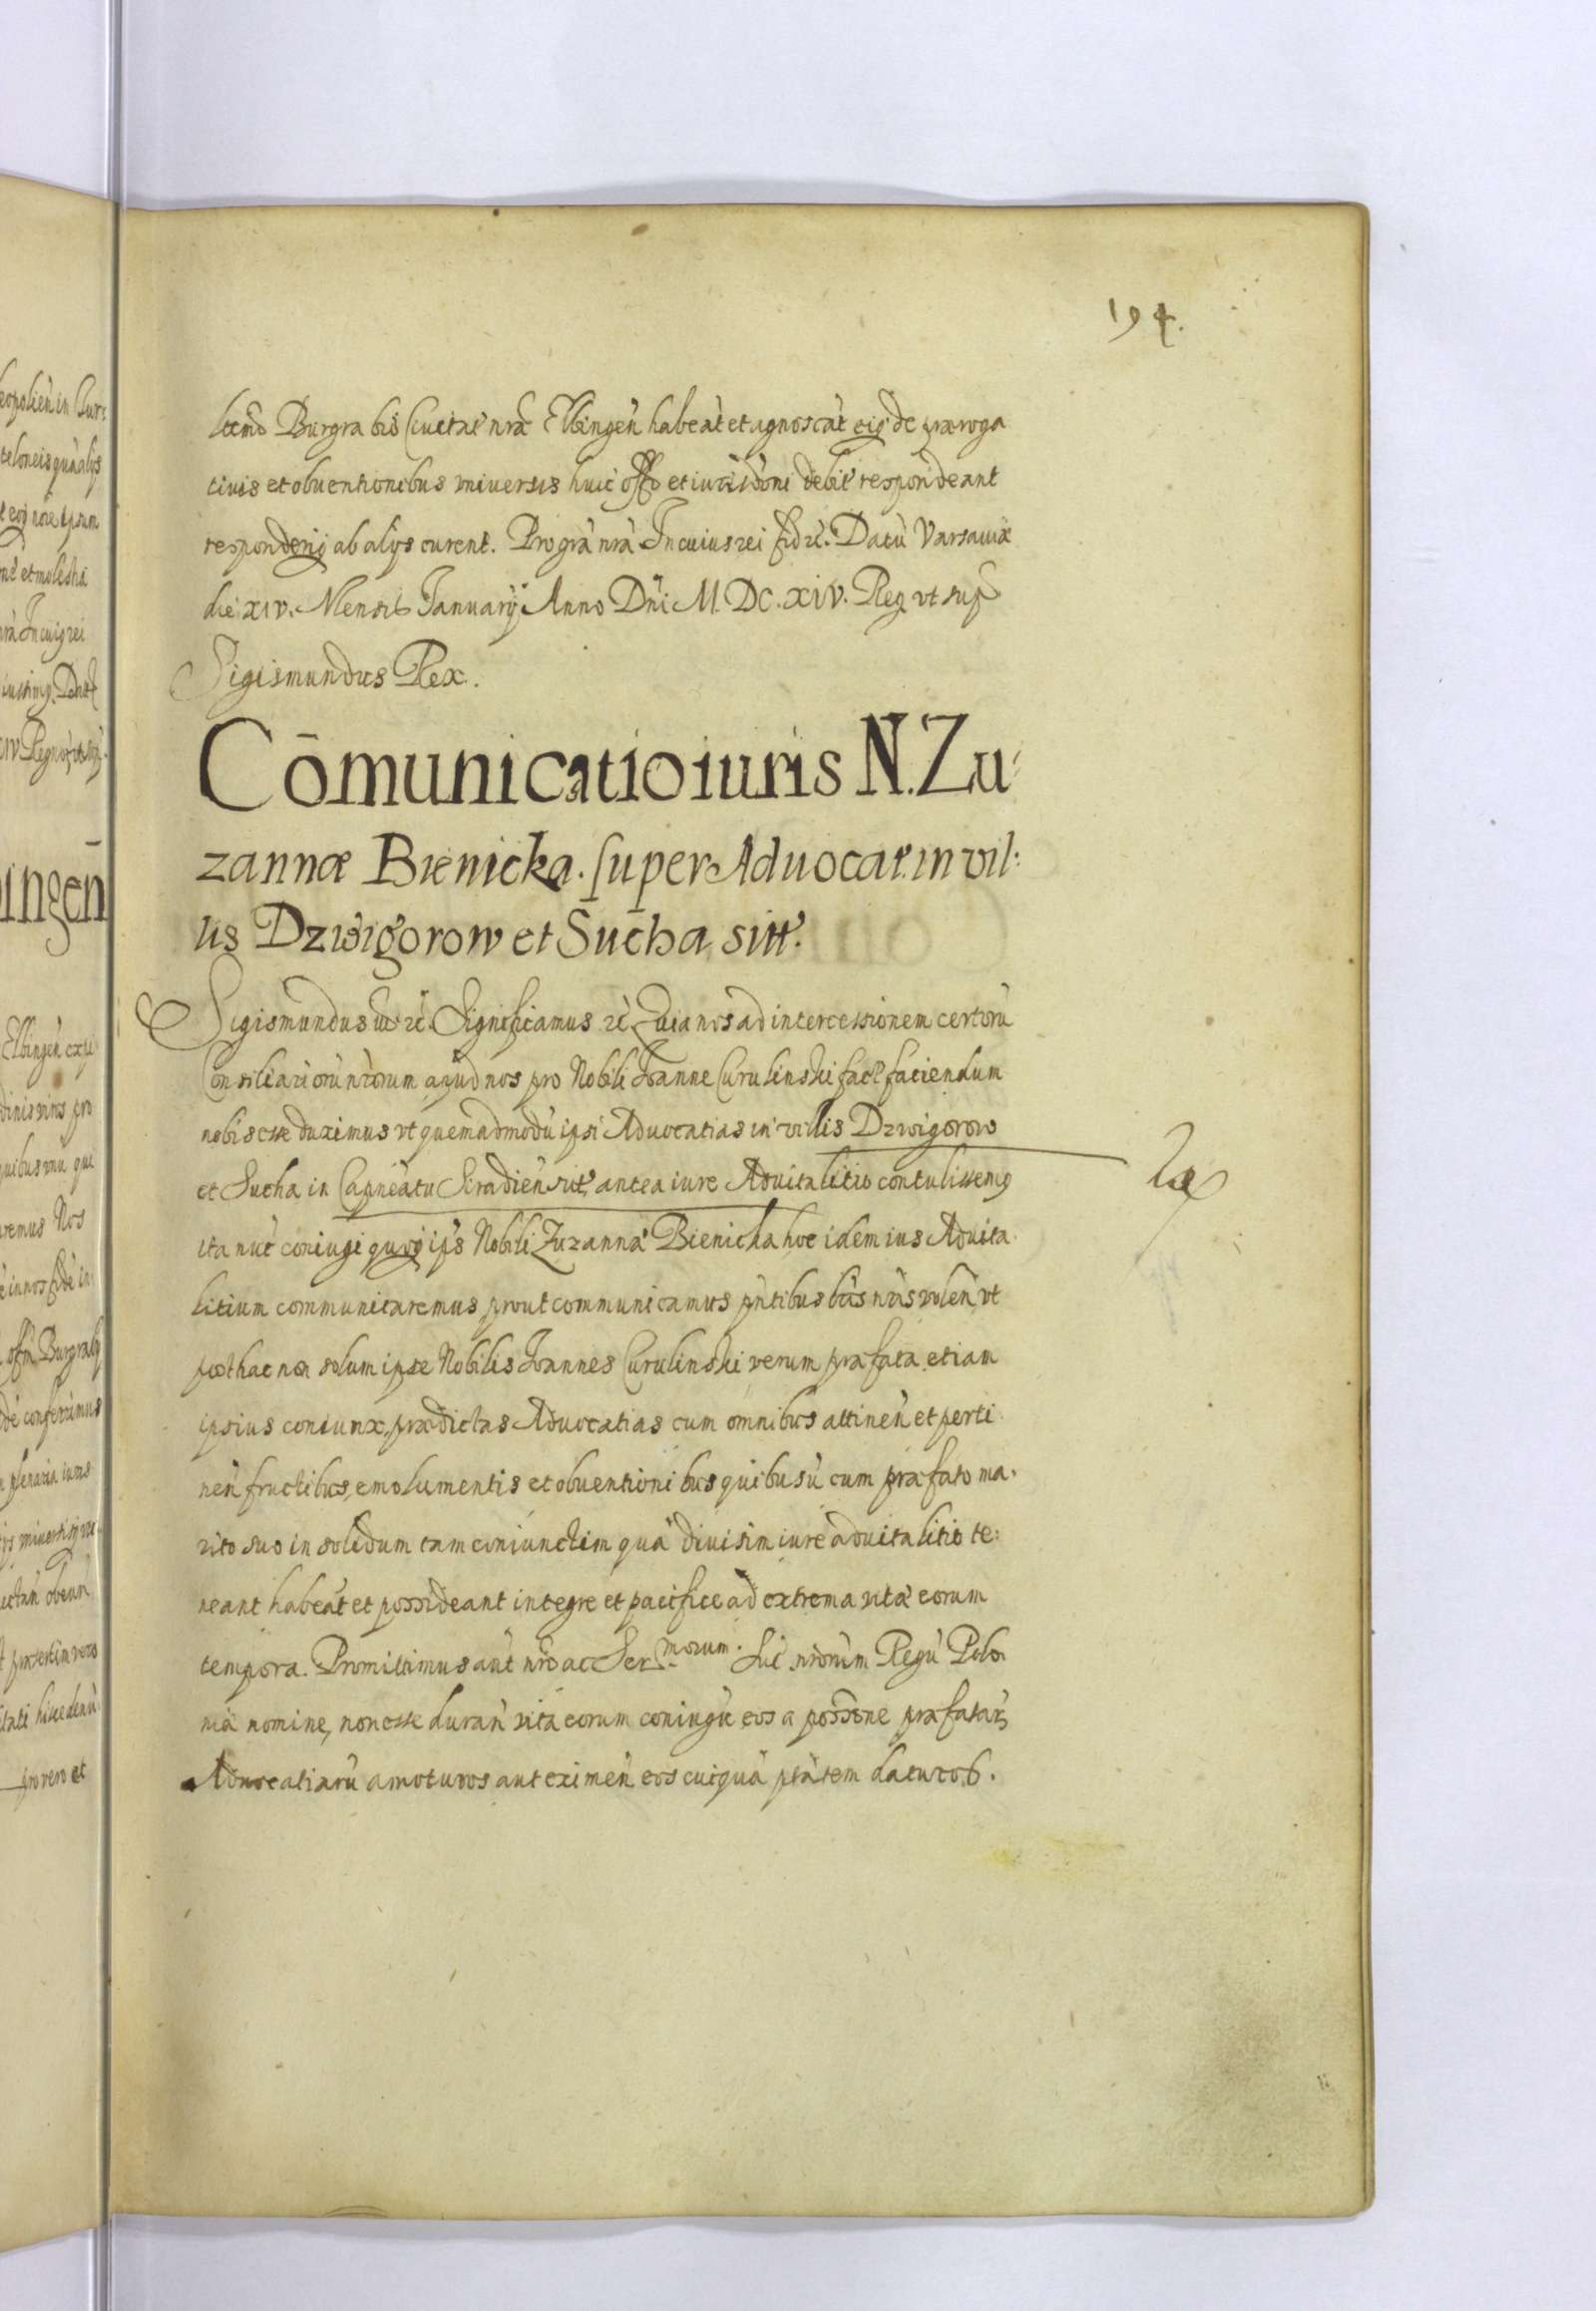 194.
Burgrabio Civitat̃ nrã Elbingeñ habeãt et agnoscãt eiq̃ de præroga
tivis et obventionibus universis huic offo et iurisdõni debit̃ respondeant
responderiq̃ ab alijs curent. Pro grã nrã. In cuius rei fid ec̃. Datũ Varsaviæ
die XIV. Mensis Januarij Anno Dñi M. DC. XIV. Reg. ut sup̃
Sigismundus Rex.
Cōmunicatio iuris N. Zu:
zannæ Bienicka. super Advocat. in vil:
lis Dzwigorow et Sucha sitt.
Sigismundus ec̃. Significamus ec̃. Quia nos ad intercessionem certorũ
Consiliariorũ nrorum apud nos pro Nobili Joanne Curulinski fact̃ faciendum
nobis esse duximus ut quemadmodũ ipsi Advocatias in villis Dzwigorow
et Sucha in Capneatu Siradieñ sit̃, antea iure Advitalitio contulissemq
ita nũc coniugi quoq̃ ips Nobili Zuzannæ Bienicka hoc idem ius Advita
litium communicaremus prout communicamus pñtibus lris nris voleñ, ut
posthac non solum ipse Nobilis Joannes Curulinski verum præfata etiam
ipsius coniunx, prædictas Advocatias cum omnibus attineñ et perti
neñ fructibus, emolumentis et obventionibus quibusũ cum præfato ma.
rito suo in solidum tam coniunctim quã divisim iure advitalitio te:
neant habeãt et possideant integre et pacifice ad extrema vitæ eorum
tempora. Promittimus aũt nro ac Ser morum. Suc̃ nrorum Regũ Polo
niæ nomine, non esse durañ vita eorum coniugũ eos a possone præfatar̃
Advocatiarũ amoturos aut eximeñ eos cuiquã ptãtem daturos.